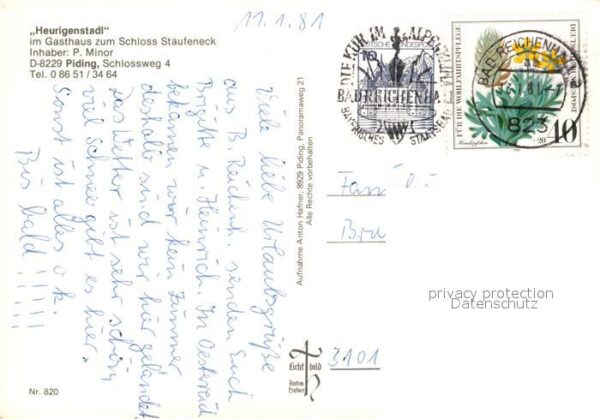 „Heurigenstadl"
im Gasthaus zum Schloss Staufeneck
Inhaber: P. Minor
D-8229 Piding, Schlossweg 4
Tel. 0 86 51 / 34 64
11.1.81
Viele liebe Urlaubsgrüße
aus B. Reichenh. senden Euch
Brigitte u. Heinrich. In Österreich
bekamen wir kein Zimmer
deshalb sind wir hier gelandet.
Das Wetter ist sehr schön,
viel Schnee gibt es hier.
Sonst ist alles o.k.
Bis bald!!!!!
Aufnahme Anton Hafner, 8929 Piding, Panoramaweg 21
Alle Rechte vorbehalten
DIE KUR IM ALPENKLIMA
BAD REICHENHALL
BAYERISCHES STAATSBAD
10
FÜR DIE WOHLFAHRTSPFLEGE
DEUTSCHE BUNDESPOST
BAD REICHENHALL
823
40
+20
Fam.
3101
privacy protection
Datenschutz
Lichtbild
Anton
Hafner
Nr. 820